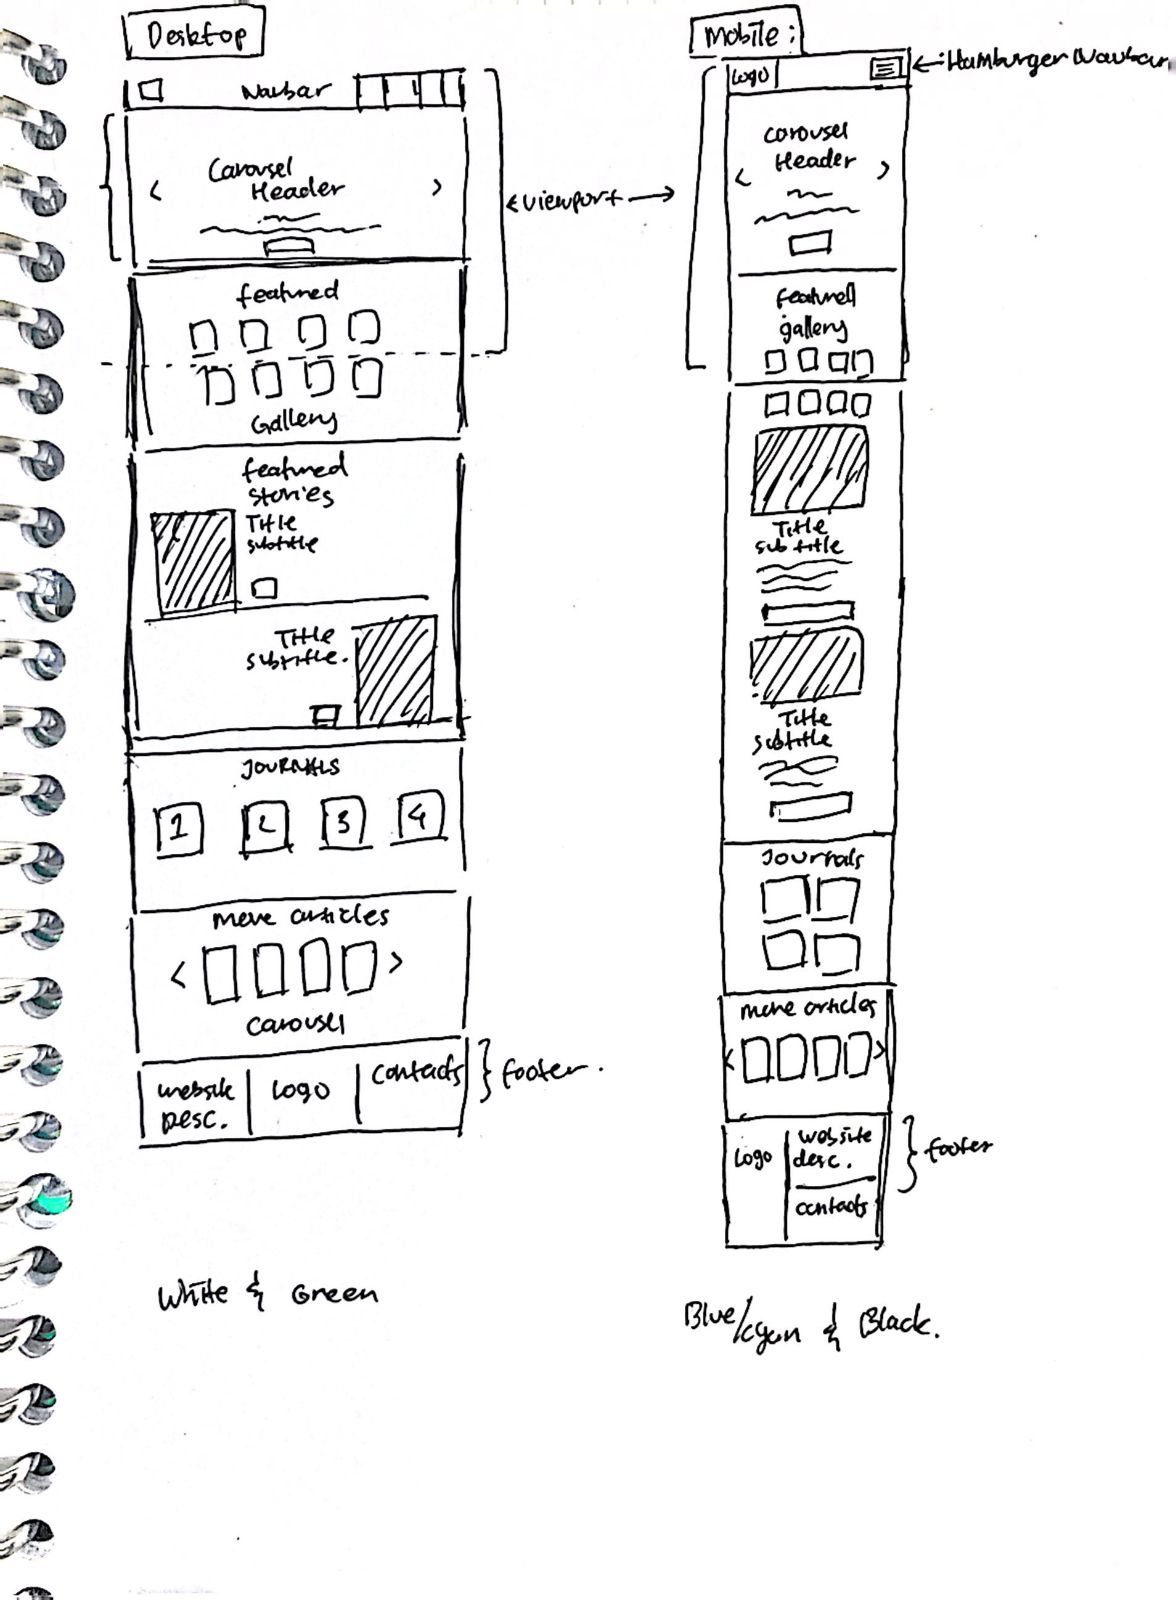 Desktop
Navbar
Carousel
Header
<viewport
featured
Gallery
featured
stories
Title
subtitle
Title
subtitle.
JOURNALS
1 2 3 4
More articles
< >
Carousel
website
Desc.
Logo
Contacts
footer.
White & Green
Mobile:
Logo
Hamburger Navbar
Carousel
Header
< >
featured
gallery
Title
subtitle
Title
subtitle
Journals
More articles
< >
Logo
website
desc.
contacts
footer
Blue/cyan & Black.